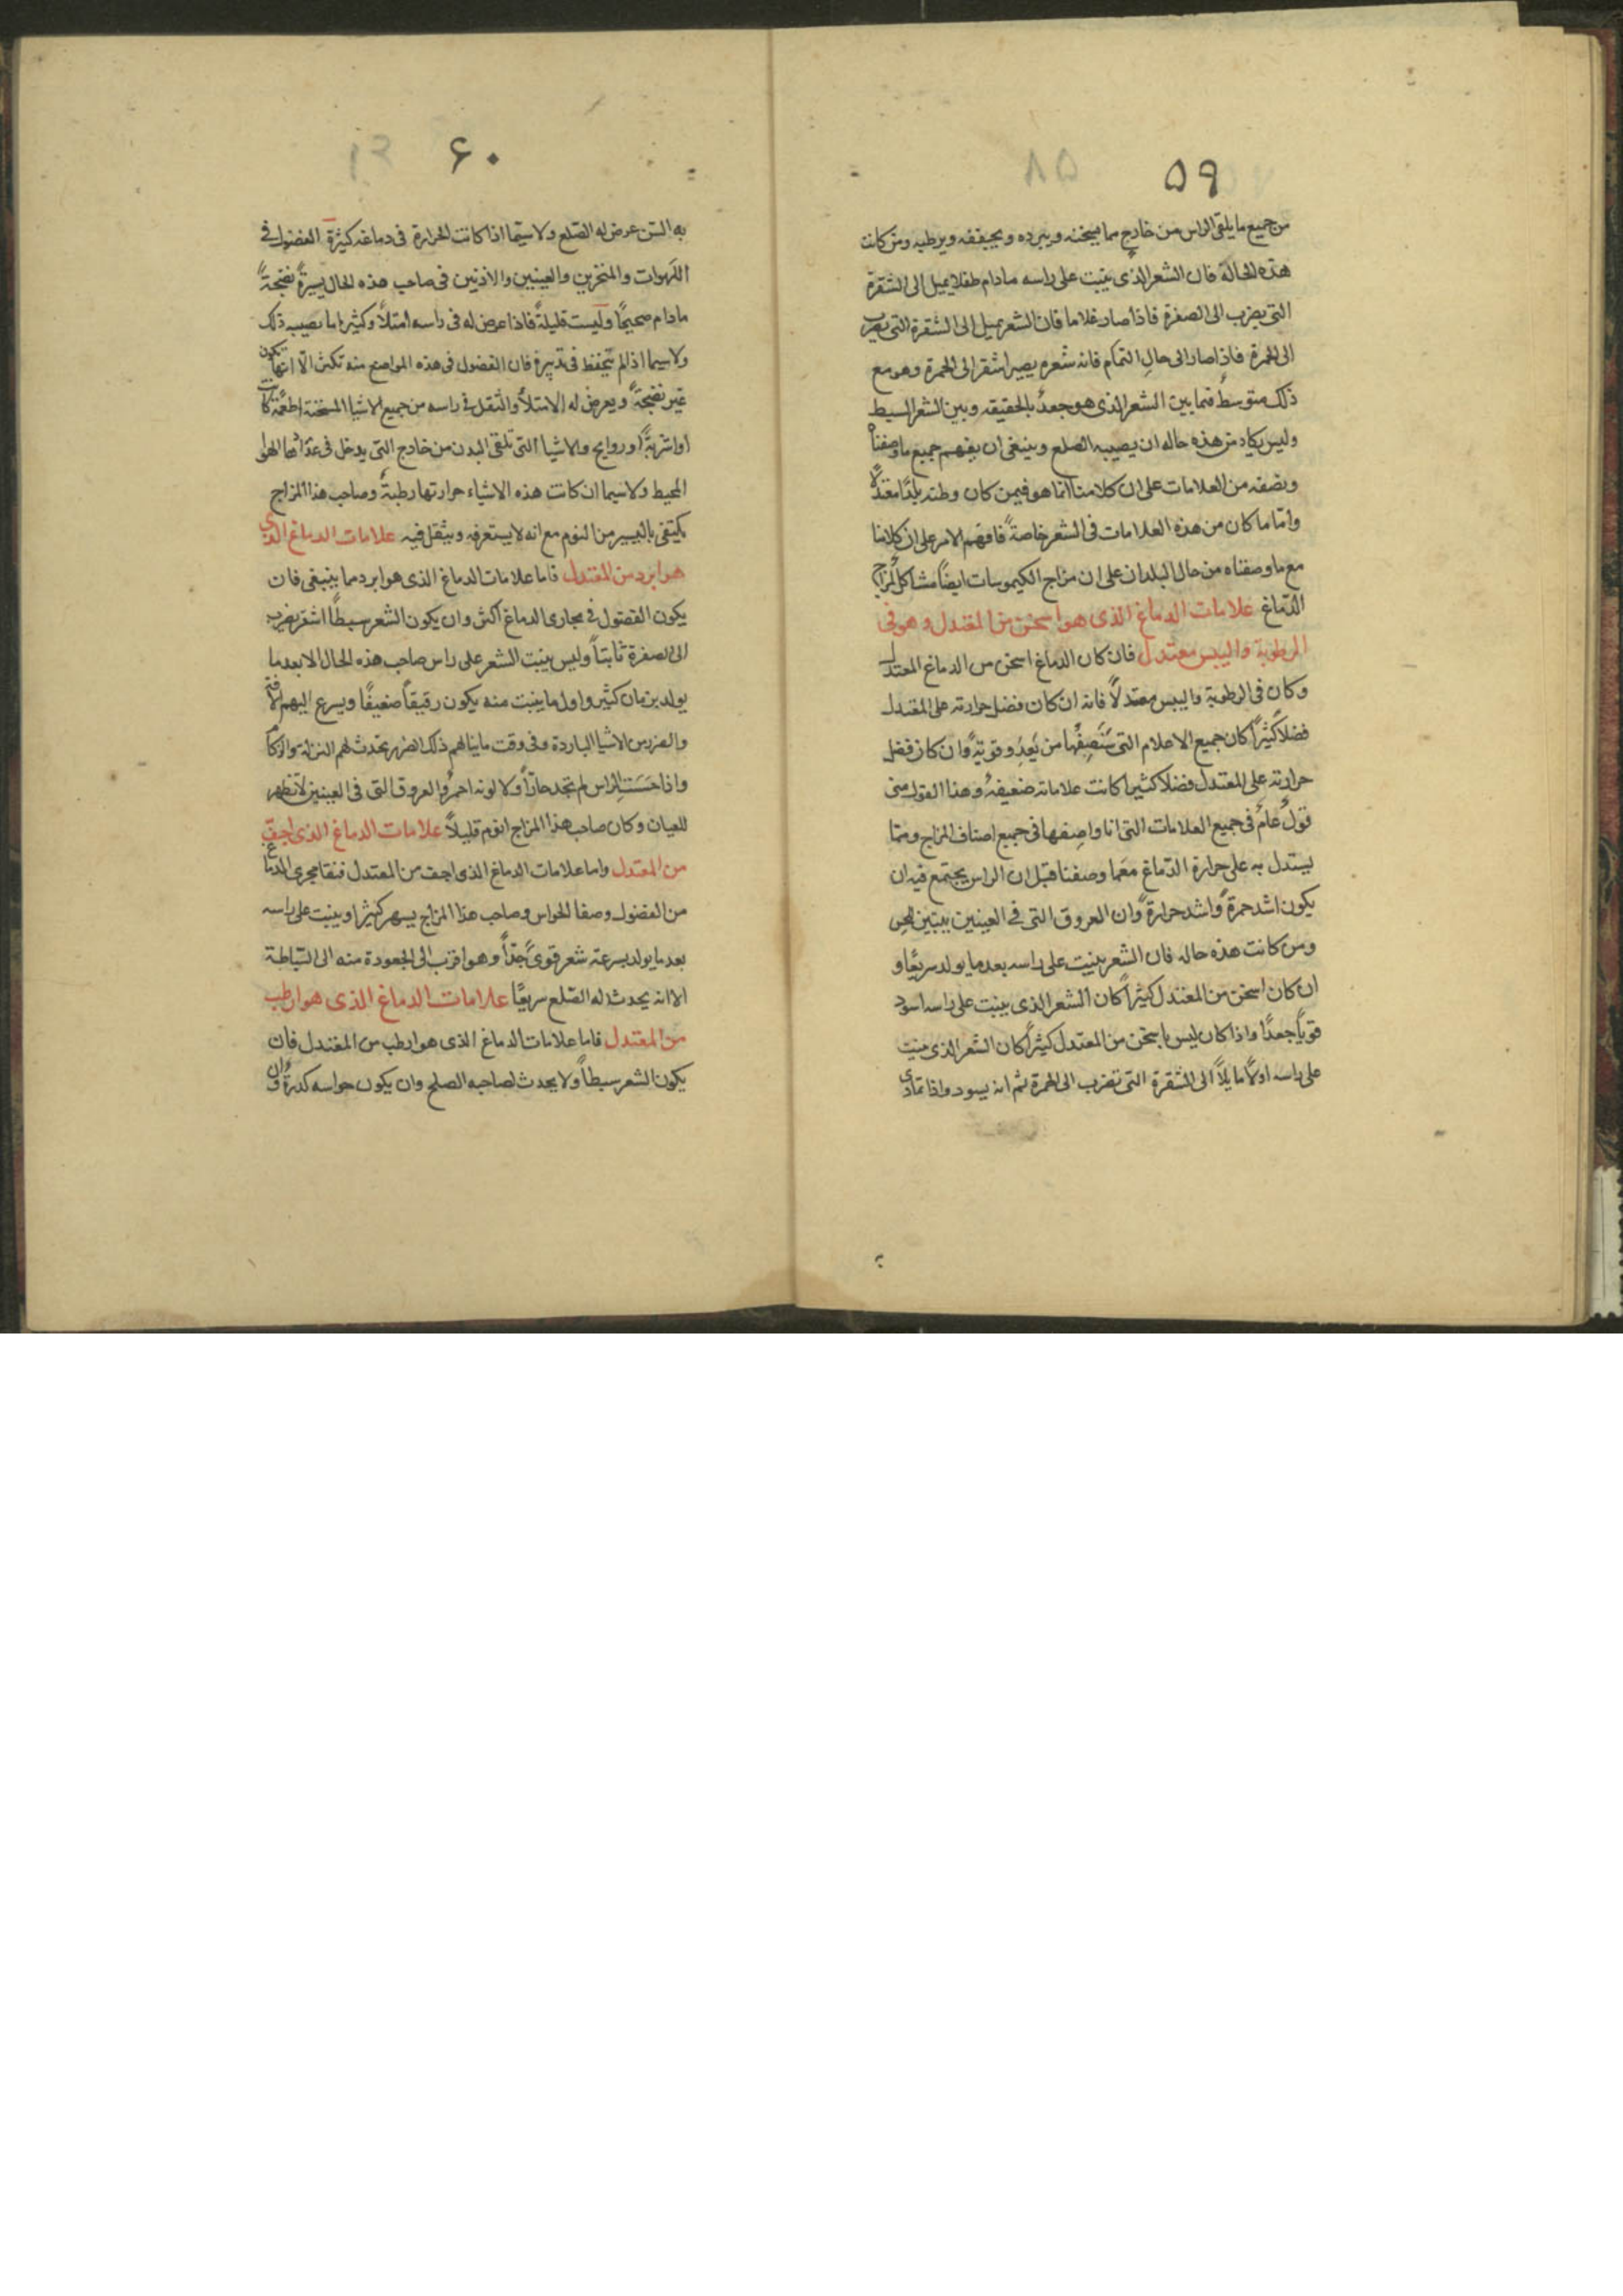 ٥٩
من جميع ما يلقى الراس من خارج مما يسخنه ويبرده ويجففه ويرطبه ومن كانت
هذه الحالة فان الشعر الذى ينبت على راسه ما دام طفلا يميل الى الشقرة
التى يضرب الى الصفرة فاذا صار غلاما فان الشعر يميل الى الشقرة التى يضرب
الى الحمرة فاذا صار الى حال التمام فانه شعره يصير اشقر الى الحمرة وهو مع
ذلك متوسطٌ فيما بين الشعر الذى هو جعدٌ بالحقيقه وبين الشعر السبط
وليس يكاد من هذه حاله ان يصيبه الصلع وينبغى ان يفهم جميع ما وصفناه
ونصفه من العلامات على ان كلامنا انما هو فيمن كان وطنه بلدًا معتدلاً
وامّا ما كان من هذه العلامات فى الشعر خاصةً فافهم الامر على ان كلامنا
مع ما وصفناه من حال البلدان على ان مزاج الكيموسات ايضًا مشاكل لمزاج
الدّماغ علامات الدماغ الذى هو اسخن من المعتدل وهو فى
الرطوبة واليبس معتدل فان كان الدماغ اسخن من الدماغ المعتدل
وكان فى الرطوبة واليبس معتدلاً فانه ان كان فضل حرارته على المعتدل
فضلاً كثيرًا كان جميع الاعلام التى سَنَصِفُها من بَعدِ وقويّةً وان كان فضل
حرارته على المعتدل فضلا كثيرا كانت علاماته ضعيفةُ وهذا القول منى
قولٌ عامٌ فى جميع العلامات التى انا واصفها فى جميع اصناف المزاج ومما
يستدل به على حرارة الدّماغ مَعَما وصفنا قبل ان الراس يجتمع فيه ان
يكون اشد حمرةً واشد حرارةً وان العروق التى فى العينين يتبين للحس
ومن كانت هذه حاله فان الشعر ينبت على راسه بعد ما يولد سريعًا و
ان كان اسخن من المعتدل كثيرًا كان الشعر الذى ينبت على راسه اسود
قويًا جعدًا واذا كان ليس باسخن من المعتدل كثيرًا كان الشعر الذى ينبت
على راسه اولاً مايلاً الى الشقرة التى تضرب الى الحمرة ثم انه يسود واذا تمادى
٦٠
به السّن عرض له الصّلع ولا سيّما اذا كانت الحرارة فى دماغه كثيرة الفضول فى
اللهوات والمنخرين والعينين والاذنين فى صاحب هذه الحال يسيرةً نضيجةً
ما دام صحيحًا وليست قليلةً فاذا عرض له فى راسه امتلاً وكثيرا ما يصيبه ذلك
ولا سيما اذا لم يتحفظ فى تدبيره فان الفضول فى هذه المواضع منه تكثر الّا انها تكون
غير نضيجةً ويعرض له الامتلاُ والثقل فى راسه من جميع الاشيا المسخنة اطعمةً كانت
او اشربةً او روايح والاشيا التى تلقى البدن من خارج التى يدخل فى عدادها الهوا
المحيط ولا سيما ان كانت هذه الاشياء حرارتها رطبةً وصاحب هذا المزاج
يكتفى باليسير من النوم مع انه لا يستغرقه ويثقل فيه علامات الدماغ الذى
هو ابرد من المعتدل فاما علامات الدماغ الذى هو ابرد مما ينبغى فان
يكون الفضول فى مجارى الدماغ اكثر وان يكون الشعر سبطًا اشقر يضرب
الى الصفرة ثابتاً وليس ينبت الشعر على راس صاحب هذه الحال الا بعد ما
يولد بزمان كثير واول ما ينبت منه يكون رقيقاً ضعيفًا ويسرع اليهم الآفة
والضرر من الاشيا الباردة وفى وقت ما ينالهم ذلك الضرر تحدث لهم النزلة والزكام
واذا حَسَسَت الراس لم تجد حاراً ولا لونه احمر والعروق التى فى العينين لا تظهر
للعيان وكان صاحب هذا المزاج انوم قليلاً علامات الدماغ الذى اجفّ
من المعتدل واما علامات الدماغ الذى اجف من المعتدل فنقا مجرى الدماغ
من الفضول وصفا الحواس وصاحب هذا المزاج يسهر كثيرا وينبت على راسه
بعد ما يولد بسرعته شعر قوىً جّداً وهو اقرب الى الجعودة منه الى السّباطة
الا انه يحدث له الصّلع سريعًا علامات الدماغ الذى هو ارطب
من المعتدل فاما علامات الدماغ الذى هو ارطب من المعتدل فان
يكون الشعر سبطاً ولا يحدث لصاحبه الصلح وان يكون حواسه كدرةً وان